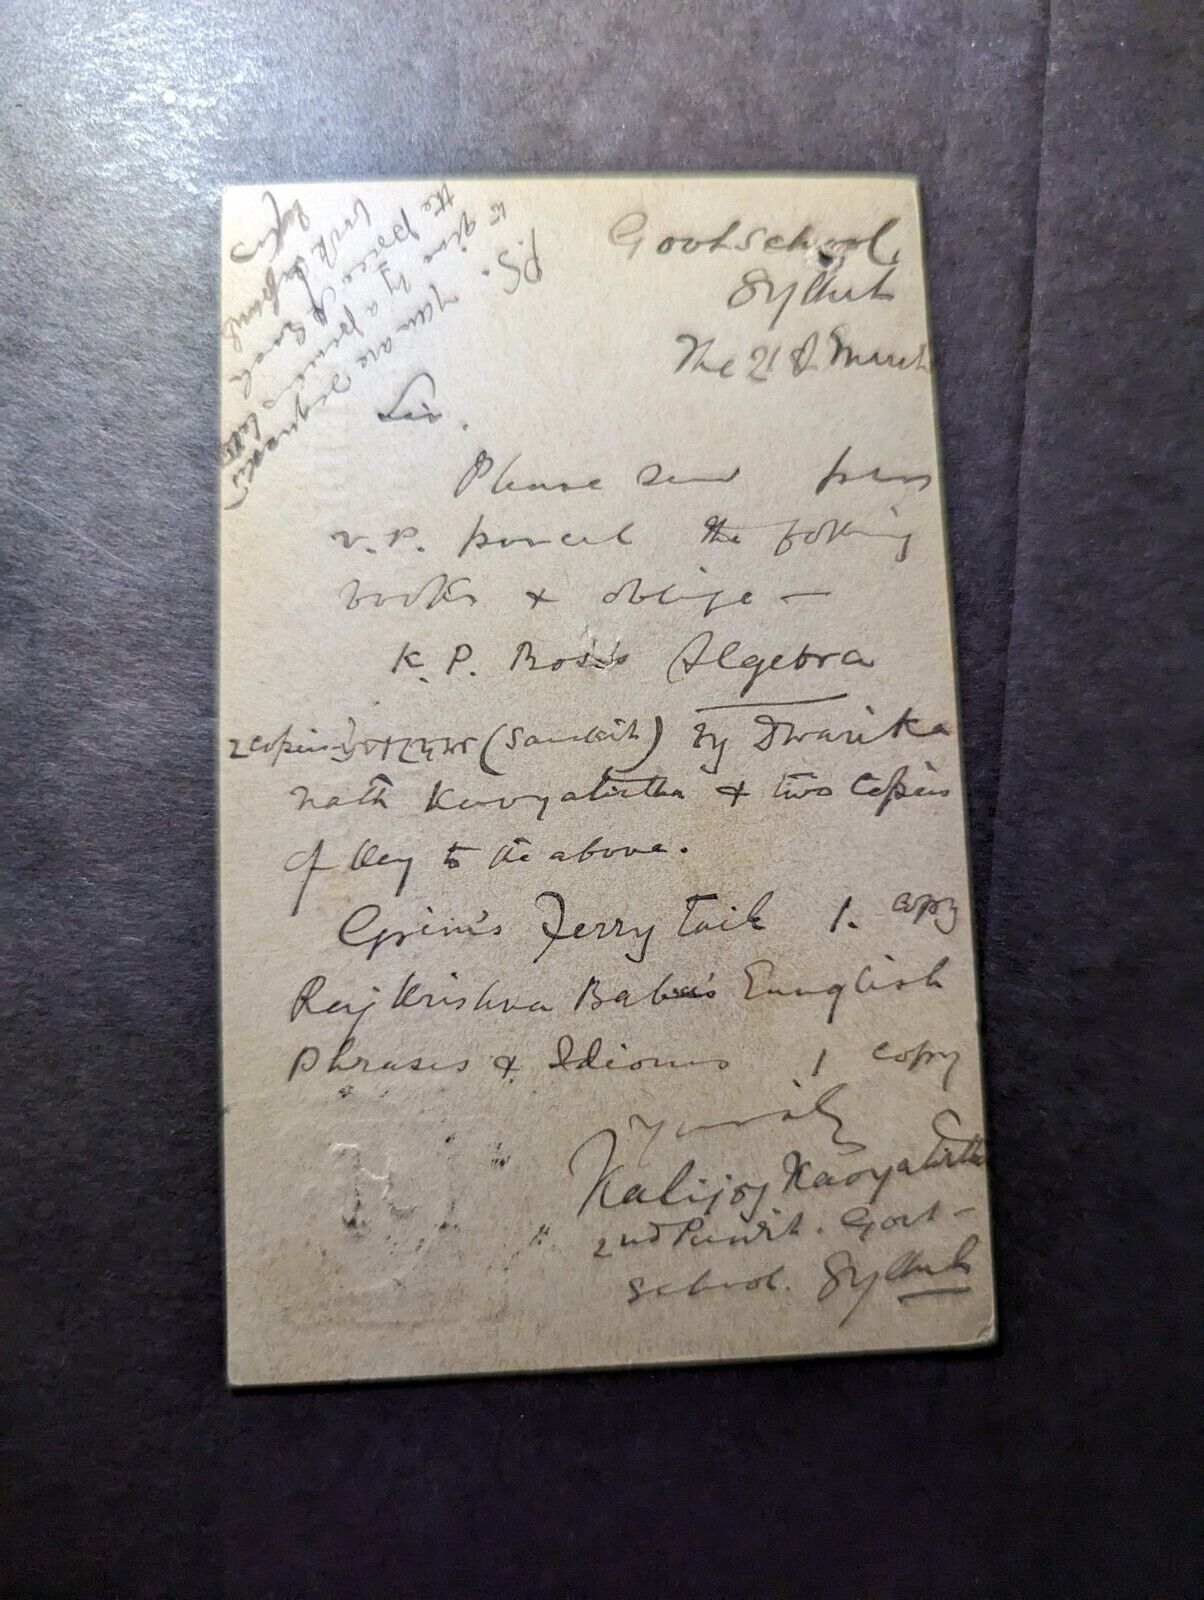 Govt School,
Sylhet
The 21st March
Sir,
Please send per
V.P. parcel the following
books & oblige —
K. P. Bose's Algebra
2 copies (Sanskrit) by Dwarika
nath Kavyatirtha & two copies
of Key to the above.
Grim's Ferry tail 1. copy
Raj Krishna Babu's Eunglish
Phrases & Idioms 1 copy
Yours truly
Kalijoy Kavyatirtha
2nd Pundit. Govt —
School. Sylhet
P.S. You are requested
to give by a
the price of each
book